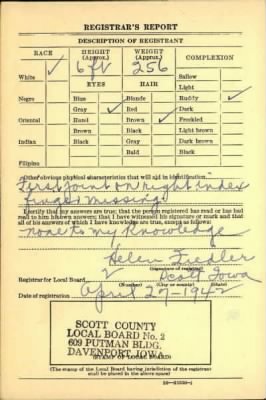 REGISTRAR'S REPORT
DESCRIPTION OF REGISTRANT
RACE HEIGHT (Approx.) WEIGHT (Approx.) COMPLEXION
White ✓ 6 ft 256 Sallow
EYES HAIR Light
Negro Blue Blonde Ruddy ✓
Gray ✓ Red Dark
Oriental Hazel Brown ✓ Freckled
Brown Black Light brown
Indian Black Gray Dark brown
Bald Black
Filipino
Other obvious physical characteristics that will aid in identification
First joint on right index
finger missing
I certify that my answers are true; that the person registered has read or has had
read to him his own answers; that I have witnessed his signature or mark and that
all of his answers of which I have knowledge are true, except as follows:
none to my knowledge
Helen Fiedler
(Signature of registrar)
Registrar for Local Board 2 Scott Iowa
(Number) (City or county) (State)
Date of registration April 27-1942
SCOTT COUNTY
LOCAL BOARD No. 2
609 PUTMAN BLDG.
DAVENPORT, IOWA
(STAMP OF LOCAL BOARD)
(The stamp of the Local Board having jurisdiction of the registrant
shall be placed in the above space)